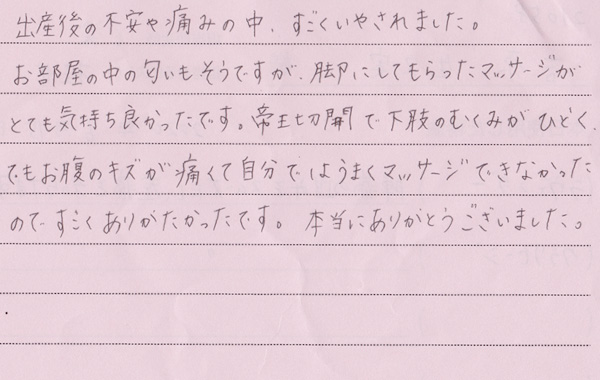 出産後の不安や痛みの中、すごくいやされました。
お部屋の中の匂いもそうですが、脚にしてもらったマッサージが
とても気持ち良かったです。帝王切開で下肢のむくみがひどく、
でもお腹のキズが痛くて自分ではうまくマッサージできなかった
のですごくありがたかったです。本当にありがとうございました。